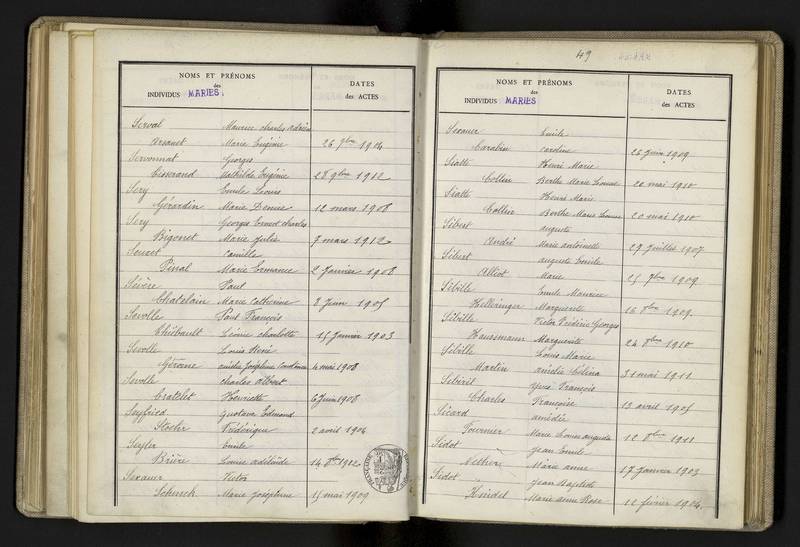 NOMS ET PRÉNOMS
des
INDIVIDUS MARIES
DATES
des ACTES
Serval Maurice Charles Adrien
Marie Eugénie 26 7bre 1904
Servonnat Georges
Cisserand Mathilde Eugénie 28 9bre 1912
Sery Emile Louis
Gérardin Marie Denise 12 mars 1908
Sery Georges Ernest Charles
Bigonet Marie Julie 7 mars 1912
Camille
Pinal Marie Ermance 2 Janvier 1908
Sévère Paul
Chatelain Marie Catherine 8 Juin 1905
Paul François
Thiébault Léonie Charlotte 15 Janvier 1903
Sevolle Louis René
Gérome Amélie Joséphine 4 mai 1908
Sevolle Charles Albert
Cratelet Henriette 6 Juin 1908
Seyfried Gustave Edmond
Stoehr Frédérique 2 avril 1904
Seyler Emile
Brière Louise Adélaïde 14 8bre 1912
Sexauer Victor
Schurch Marie Joséphine 15 mai 1909
49
NOMS ET PRÉNOMS
des
INDIVIDUS MARIES
DATES
des ACTES
Sexauer Emile
Carabin Caroline 26 Juin 1909
Siatte Henri Marie
Collin Berthe Marie Louise 20 mai 1910
Siatte Henri Marie
Collin Berthe Marie Louise 20 mai 1910
Sibert Auguste
André Marie Antoinette 27 Juillet 1907
Sibert Auguste Emile
Alliot Marie 25 7bre 1909
Sibille Emile Maurice
Helleringer Marguerite 16 8bre 1909
Sibille Victor Frédéric Georges
Haussmann Marguerite 24 8bre 1910
Sibille Louis Marie
Martin Amélie Célina 31 mai 1911
Sibiril Yves François
Charles Françoise 13 avril 1905
Sicard Amédée
Fournier Marie Louise Augusta 12 8bre 1911
Sidot Jean Emile
Marie Anne 17 Janvier 1903
Sidot Jean Baptiste
Kindel Marie Anne Rose 12 février 1904